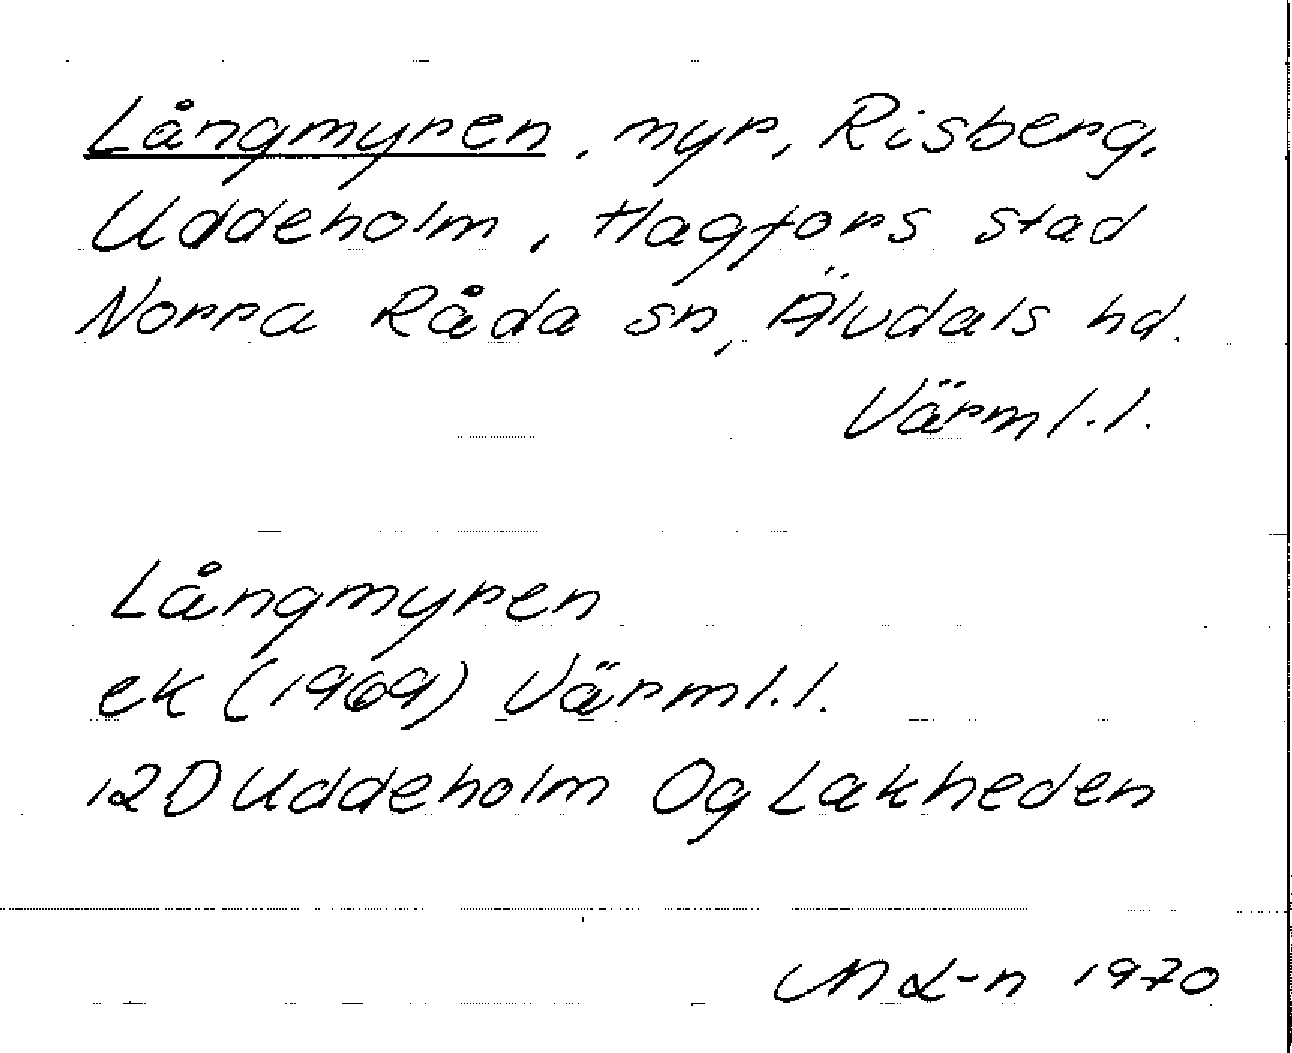 Långmyren, myr, Risberg,
Uddeholm, Hagfors stad
Norra Råda sn, Älvdals hd.
Värml.l.
Långmyren
ek (1969) Värml.l.
12D Uddeholm 0g Lakheden
1970